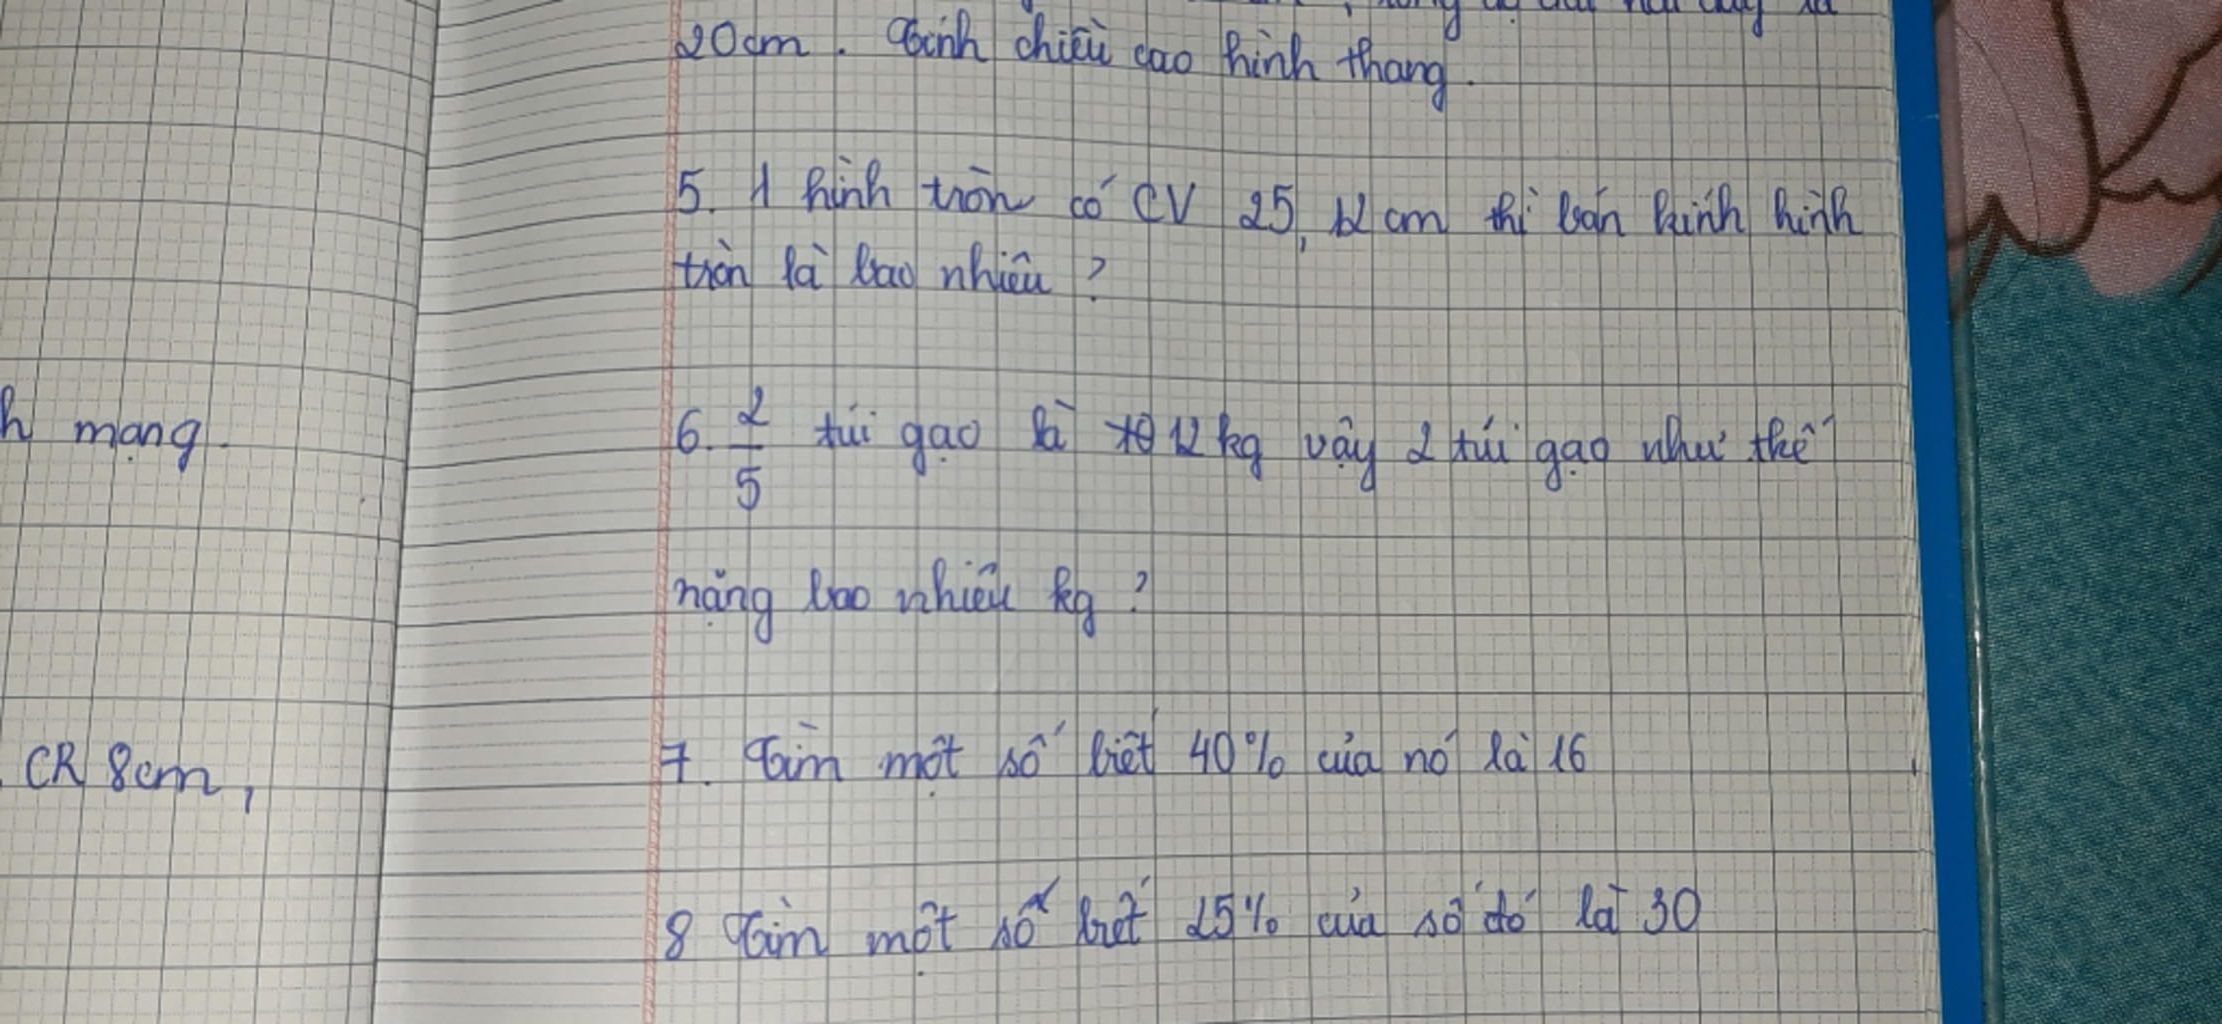 20cm. Tính chiều cao hình thang.
5. 1 hình tròn có CV 25,12 cm thì bán kính hình
tròn là bao nhiêu?
h mạng.
6. 2/5 túi gạo là 12 kg vậy 2 túi gạo như thế
nặng bao nhiêu kg?
CR 8cm,
7. Tìm một số biết 40% của nó là 16
8 Tìm một số biết 25% của số đó là 30